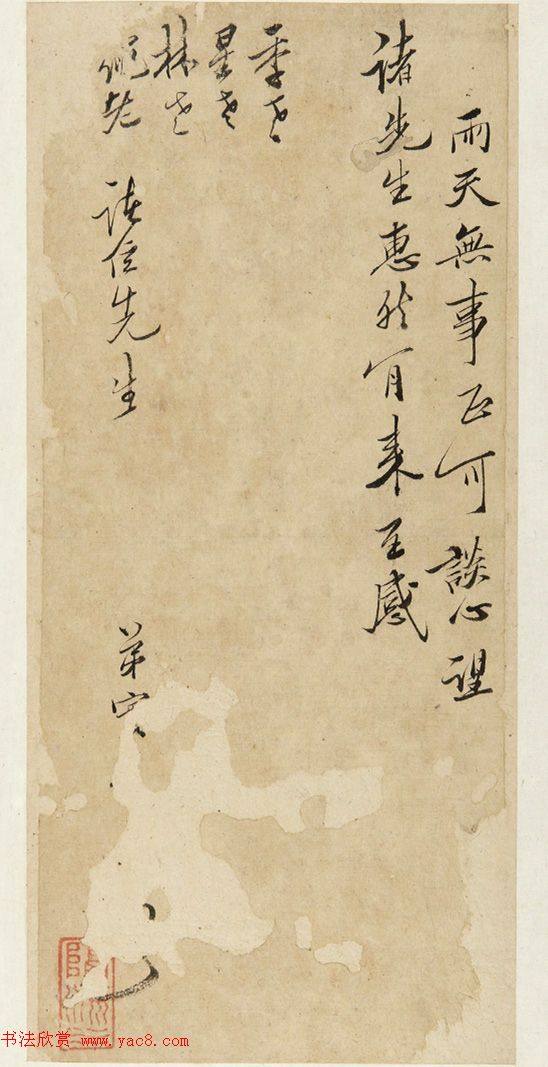 雨天無事正可談心望
諸先生惠然肯来至感
季老
星老
林老
老
諸位先生
弟
书法欣赏 www.yac8.com